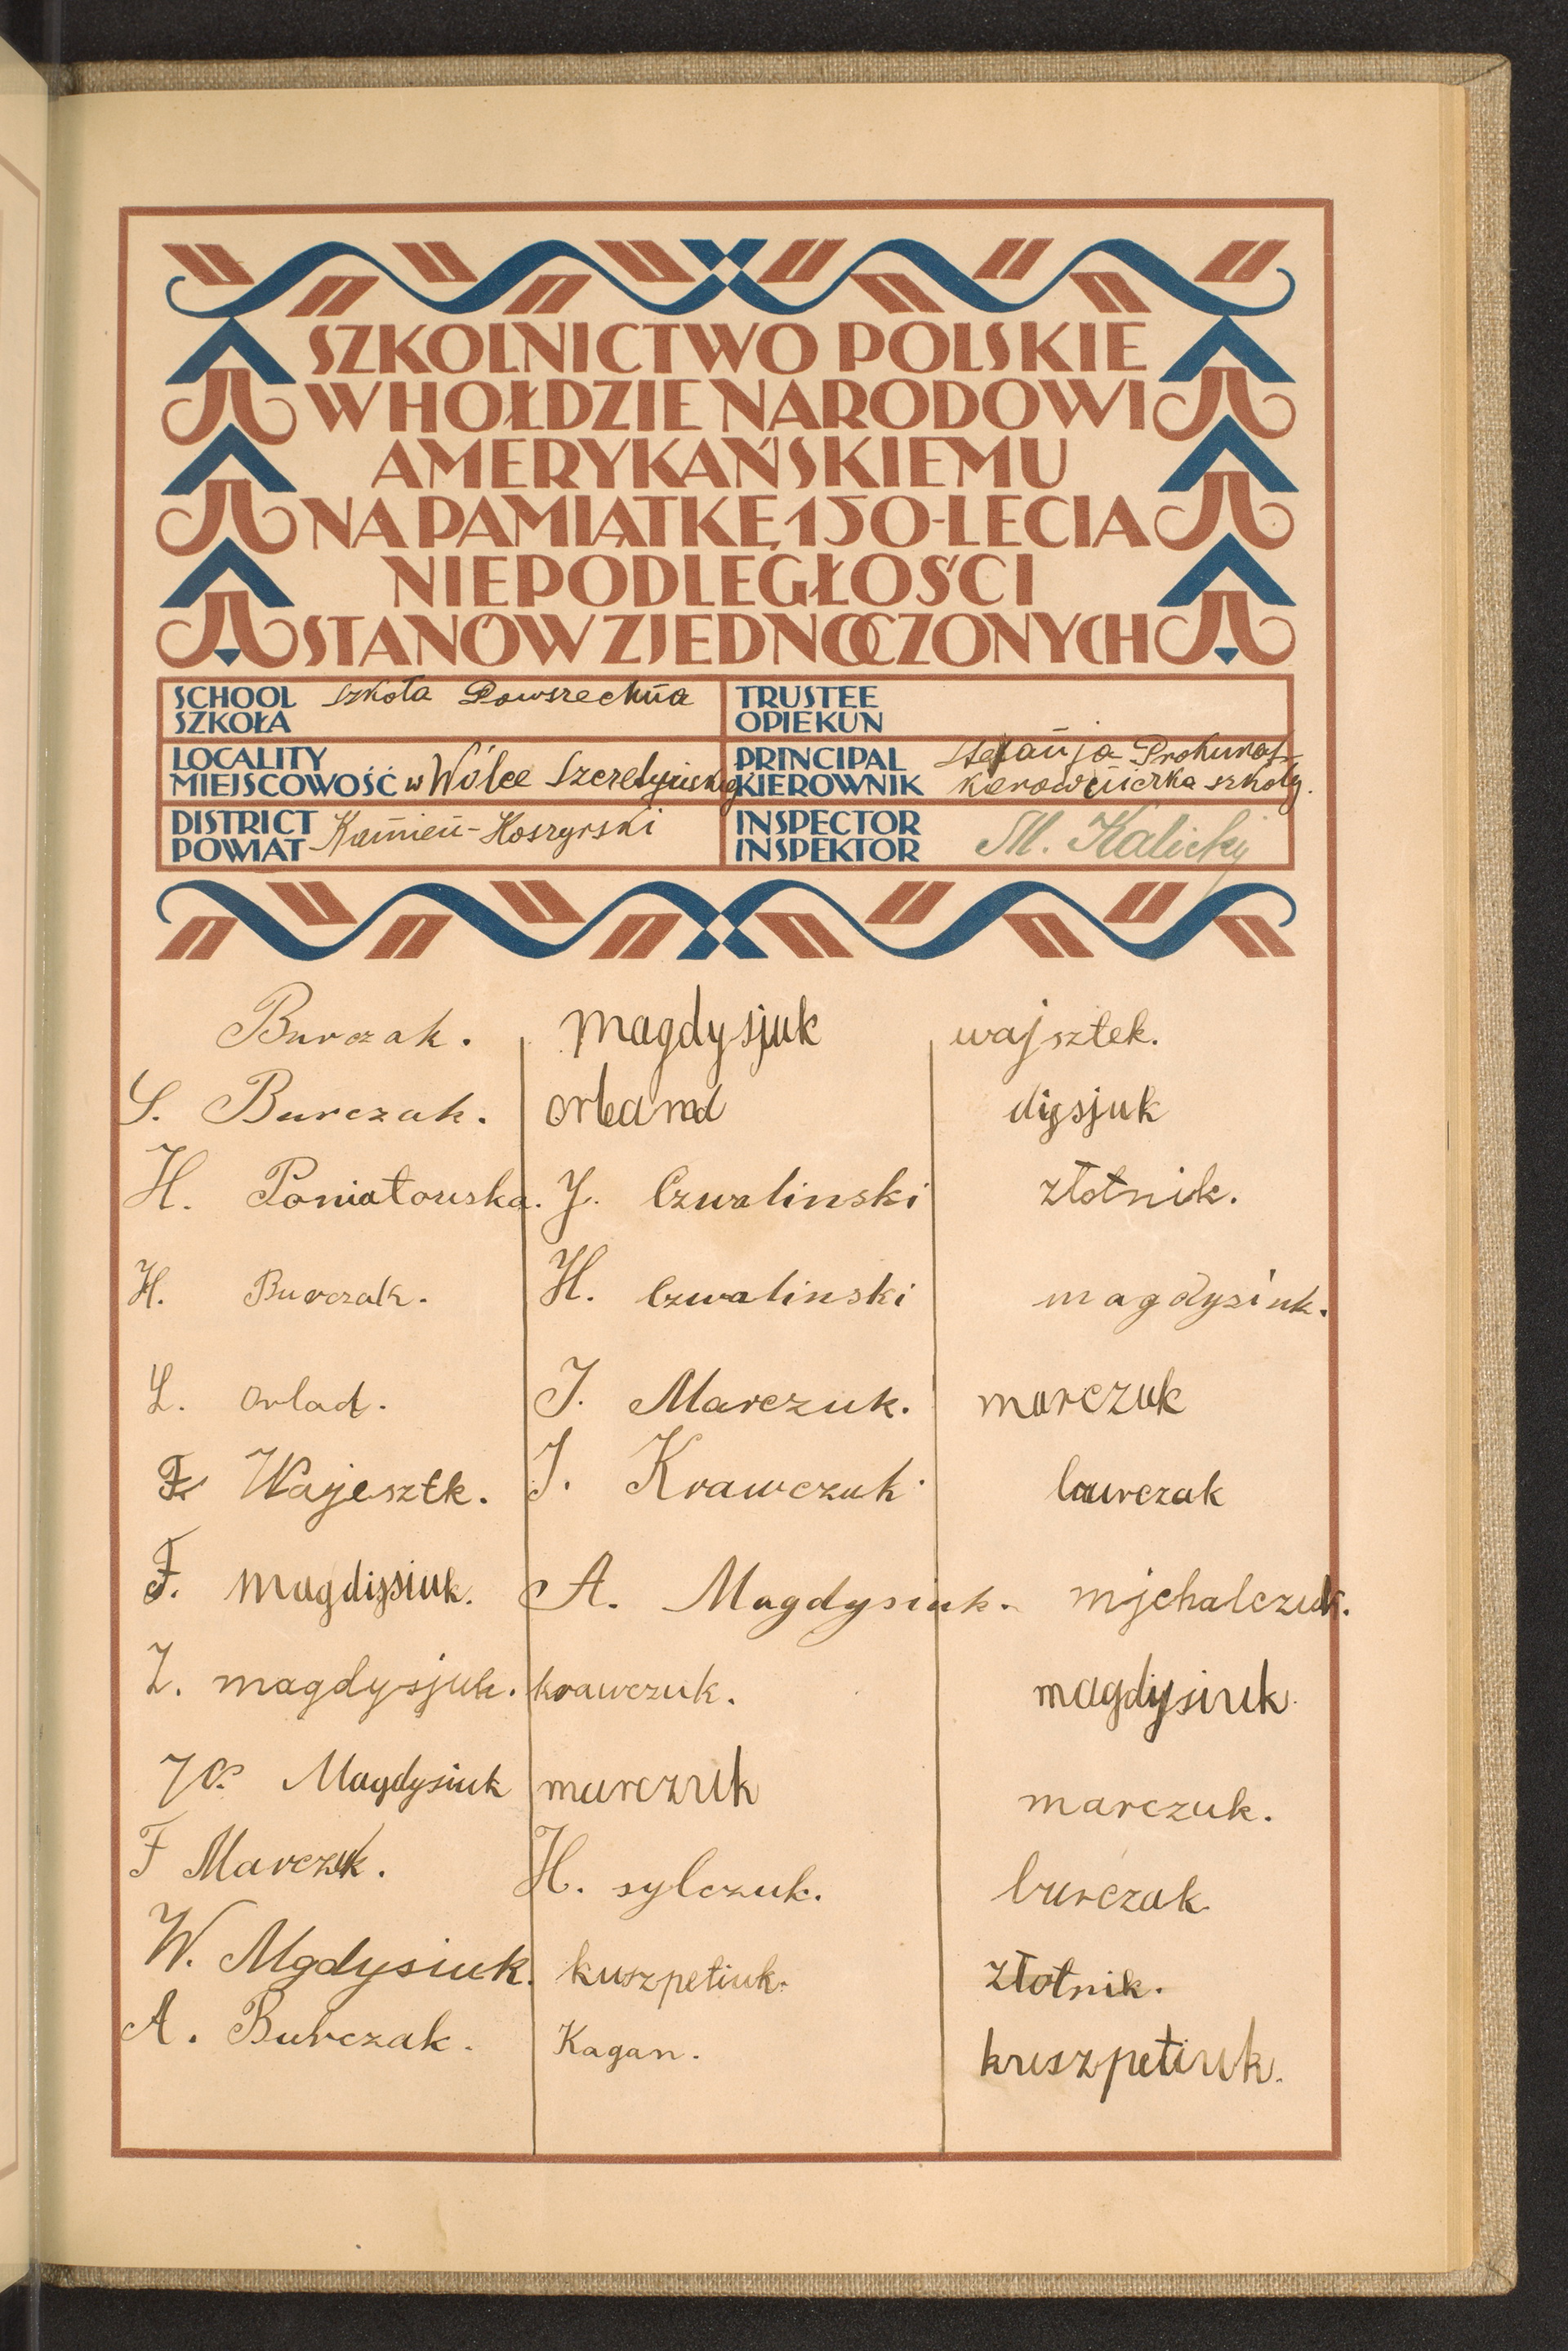 SZKOLNICTWO POLSKIE
W HOŁDZIE NARODOWI
AMERYKAŃSKIEMU
NA PAMIĄTKĘ 150-LECIA
NIEPODLEGŁOŚCI
STANÓW ZJEDNOCZONYCH
SCHOOL
SZKOŁA
szkoła Powszechna
TRUSTEE
OPIEKUN
LOCALITY
MIEJSCOWOŚĆ
w Wólce
PRINCIPAL
KIEROWNIK
Stefanja
kierowniczka szkoły.
DISTRICT
POWIAT
Kamień-Koszyrski
INSPECTOR
INSPEKTOR
M. Kalicky
Burczak.
S. Burczak.
H. Poniatowska.
H. Burczak.
L. orlad.
F. Wajesztk.
F. magdysiuk.
Z. magdysjuk.
Magdysiuk
F Marczuk.
W. Mgdysiuk.
A. Burczak.
magdysjuk
orland
J. Czwalinski
H. Czwalinski
J. Marczuk.
J. Krawczuk
A. Magdysiuk.
krawczuk.
marczuk
H. sylczuk.
kuszpetiuk.
Kagan.
wajsztek.
digsjuk
złotnik.
magdysiuk.
marczuk
burczak
mjchalczuk.
magdysiuk
marczuk.
burczak
złotnik.
kuszpetiuk.